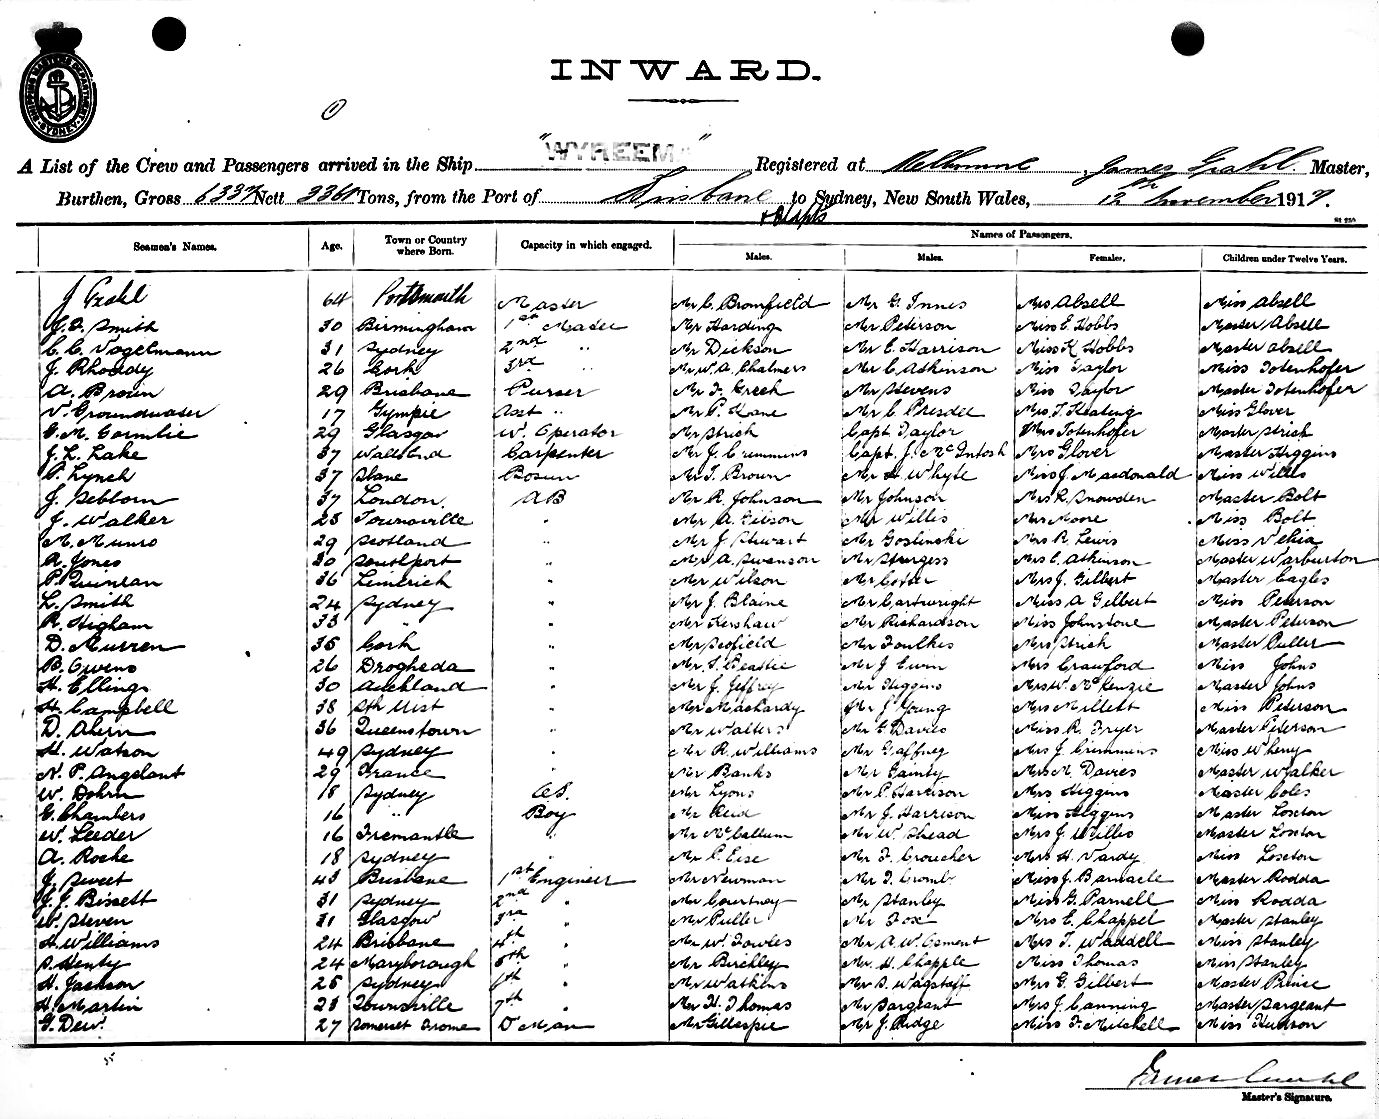 SHIPPING MASTER'S DEPARTMENT SYDNEY
INWARD.
A List of the Crew and Passengers arrived in the Ship "WYREEMA" Registered at Melbourne James Grahl. Master,
Burthen, Gross 6337 Nett 3361 Tons, from the Port of Brisbane to Sydney, New South Wales, 12th November 1917.
Seamen's Names. Age. Town or Country where Born. Capacity in which engaged. Names of Passengers.
Males. Males. Females. Children under Twelve Years.
J Grahl 64 Portsmouth Master Mr C. Bromfield Mr G. Innes Mrs Absell Miss Absell
Smith 30 Birmingham 1st Mate Mr Harding Mr Peterson Miss E. Hobbs Master Absell
C. C. Vogelmann 31 Sydney 2nd " Mr Dickson Mr E. Harrison Miss K Hobbs Master Absell
J. Rhoady 26 Cork 3rd " Mr W. A. Chalmers Mr C Atkinson Miss Taylor Miss Totenhofer
A. Brown 29 Brisbane Purser Mr F. Creek Mr Stevens Miss Taylor Master Totenhofer
V. Groundwater 17 Gympie Asst " Mr P. Kane Mr C Presdee Mrs T. Keating Miss Glover
29 Glasgow W. Operator Mr Strich Capt. Taylor Mrs Totenhofer Master Strich
J. L. Lake 37 Wallsend Carpenter Mr J. Crimmins Capt. J. McIntosh Mrs Glover Master Higgins
P. Lynch 37 Bosun Mr T. Brown Mr H Whyte Miss J. Macdonald Miss Willis
J. Seblom 37 London. AB Mr R. Johnson Mr Johnson Mrs R. Snowden Master Bolt
J. Walker 25 Townsville " Mr A. Gibson Mr Willis Mrs Moore Miss Bolt
M. Munro 29 Scotland " Mr J Stewart Mr Goslinski Mrs R. Lewis
R. Jones 30 Southport " Mr A Swanson Mr Sturgess Mrs C. Atkinson Master Warburton
P. Quinlan 36 Limerick " Mr Wilson Mr Cotter Mrs J. Gilbert Master Eagles
L. Smith 24 Sydney " Mr J. Blaine Mr Cartwright Miss A Gilbert Miss Peterson
R. Higham 33 " " Mr Kershaw Mr Richardson Miss Johnstone Master Peterson
D. Murren 35 Cork " Mr Scofield Mr Foulkes Mrs Strich Master Puller
B. Owens 26 Drogheda " Mr T. Beattie Mr J Ewin Mrs Crawford Miss Johns
H. Ellings 30 Auckland " Mr J. Jeffrey Mr Higgins Mrs W. McKenzie Master Johns
H. Campbell 38 Sth Uist " Mr Mackardy Mr J Young Mrs Millett Miss Peterson
D. Ahern 36 Queenstown " Mr Walters Mr E Davies Miss R. Fryer Master Peterson
H. Watson 49 Sydney " Mr R Williams Mr Gaffney Mrs J. Crimmins Miss Wherry
N. P. Angelant 29 France " Mr Banks Mr Gainty Mrs M. Davies Master Walker
W. Dohrn 18 Sydney O.S. Mr Lyons Mr P. Harrison Mrs Higgins Master Coles
G. Chambers 16 " Boy Mr Reid Mr J. Harrison Miss Higgins Master Loxton
W. Leeder 16 Fremantle " Mr McCallum Mr W. Shead Mrs J. Willis Master Loxton
A. Roche 18 Sydney Mr C. Eise Mr F. Croucher Mrs H. Vardy Miss Loxton
J. Sweet 43 Brisbane 1st Engineer Mr Newman Mr T. Cromb Miss J. Barnacle Master Rodda
J. J. Bissett 31 Sydney 2nd " Mr Courtney Mr Stanley Miss G. Parnell Miss Rodda
W. Steven 31 Glasgow 3rd " Mr Puller Mr Fox Mrs E. Chappel Master Stanley
H. Williams 24 Brisbane 4th " Mr W. Fowles Mr A. W. Osment Mrs T. Waddell Miss Stanley
S. Henty 24 Maryborough 5th " Mr Birchley Mr H. Chapple Miss Thomas Miss Stanley
H. Jackson 25 Sydney 6th " Mr Watkins Mr S. Wagstaff Mrs G. Gilbert Master Prince
H. Martin 25 Townsville 7th " Mr H. Thomas Mr Sargeant Mrs J. Canning Master Sargeant
G. Dew. 27 Somerset Frome D Man Mr Gillespie Mr J. Ridge Miss F. Mitchell Miss Hudson
35
James Grahl
Master's Signature.